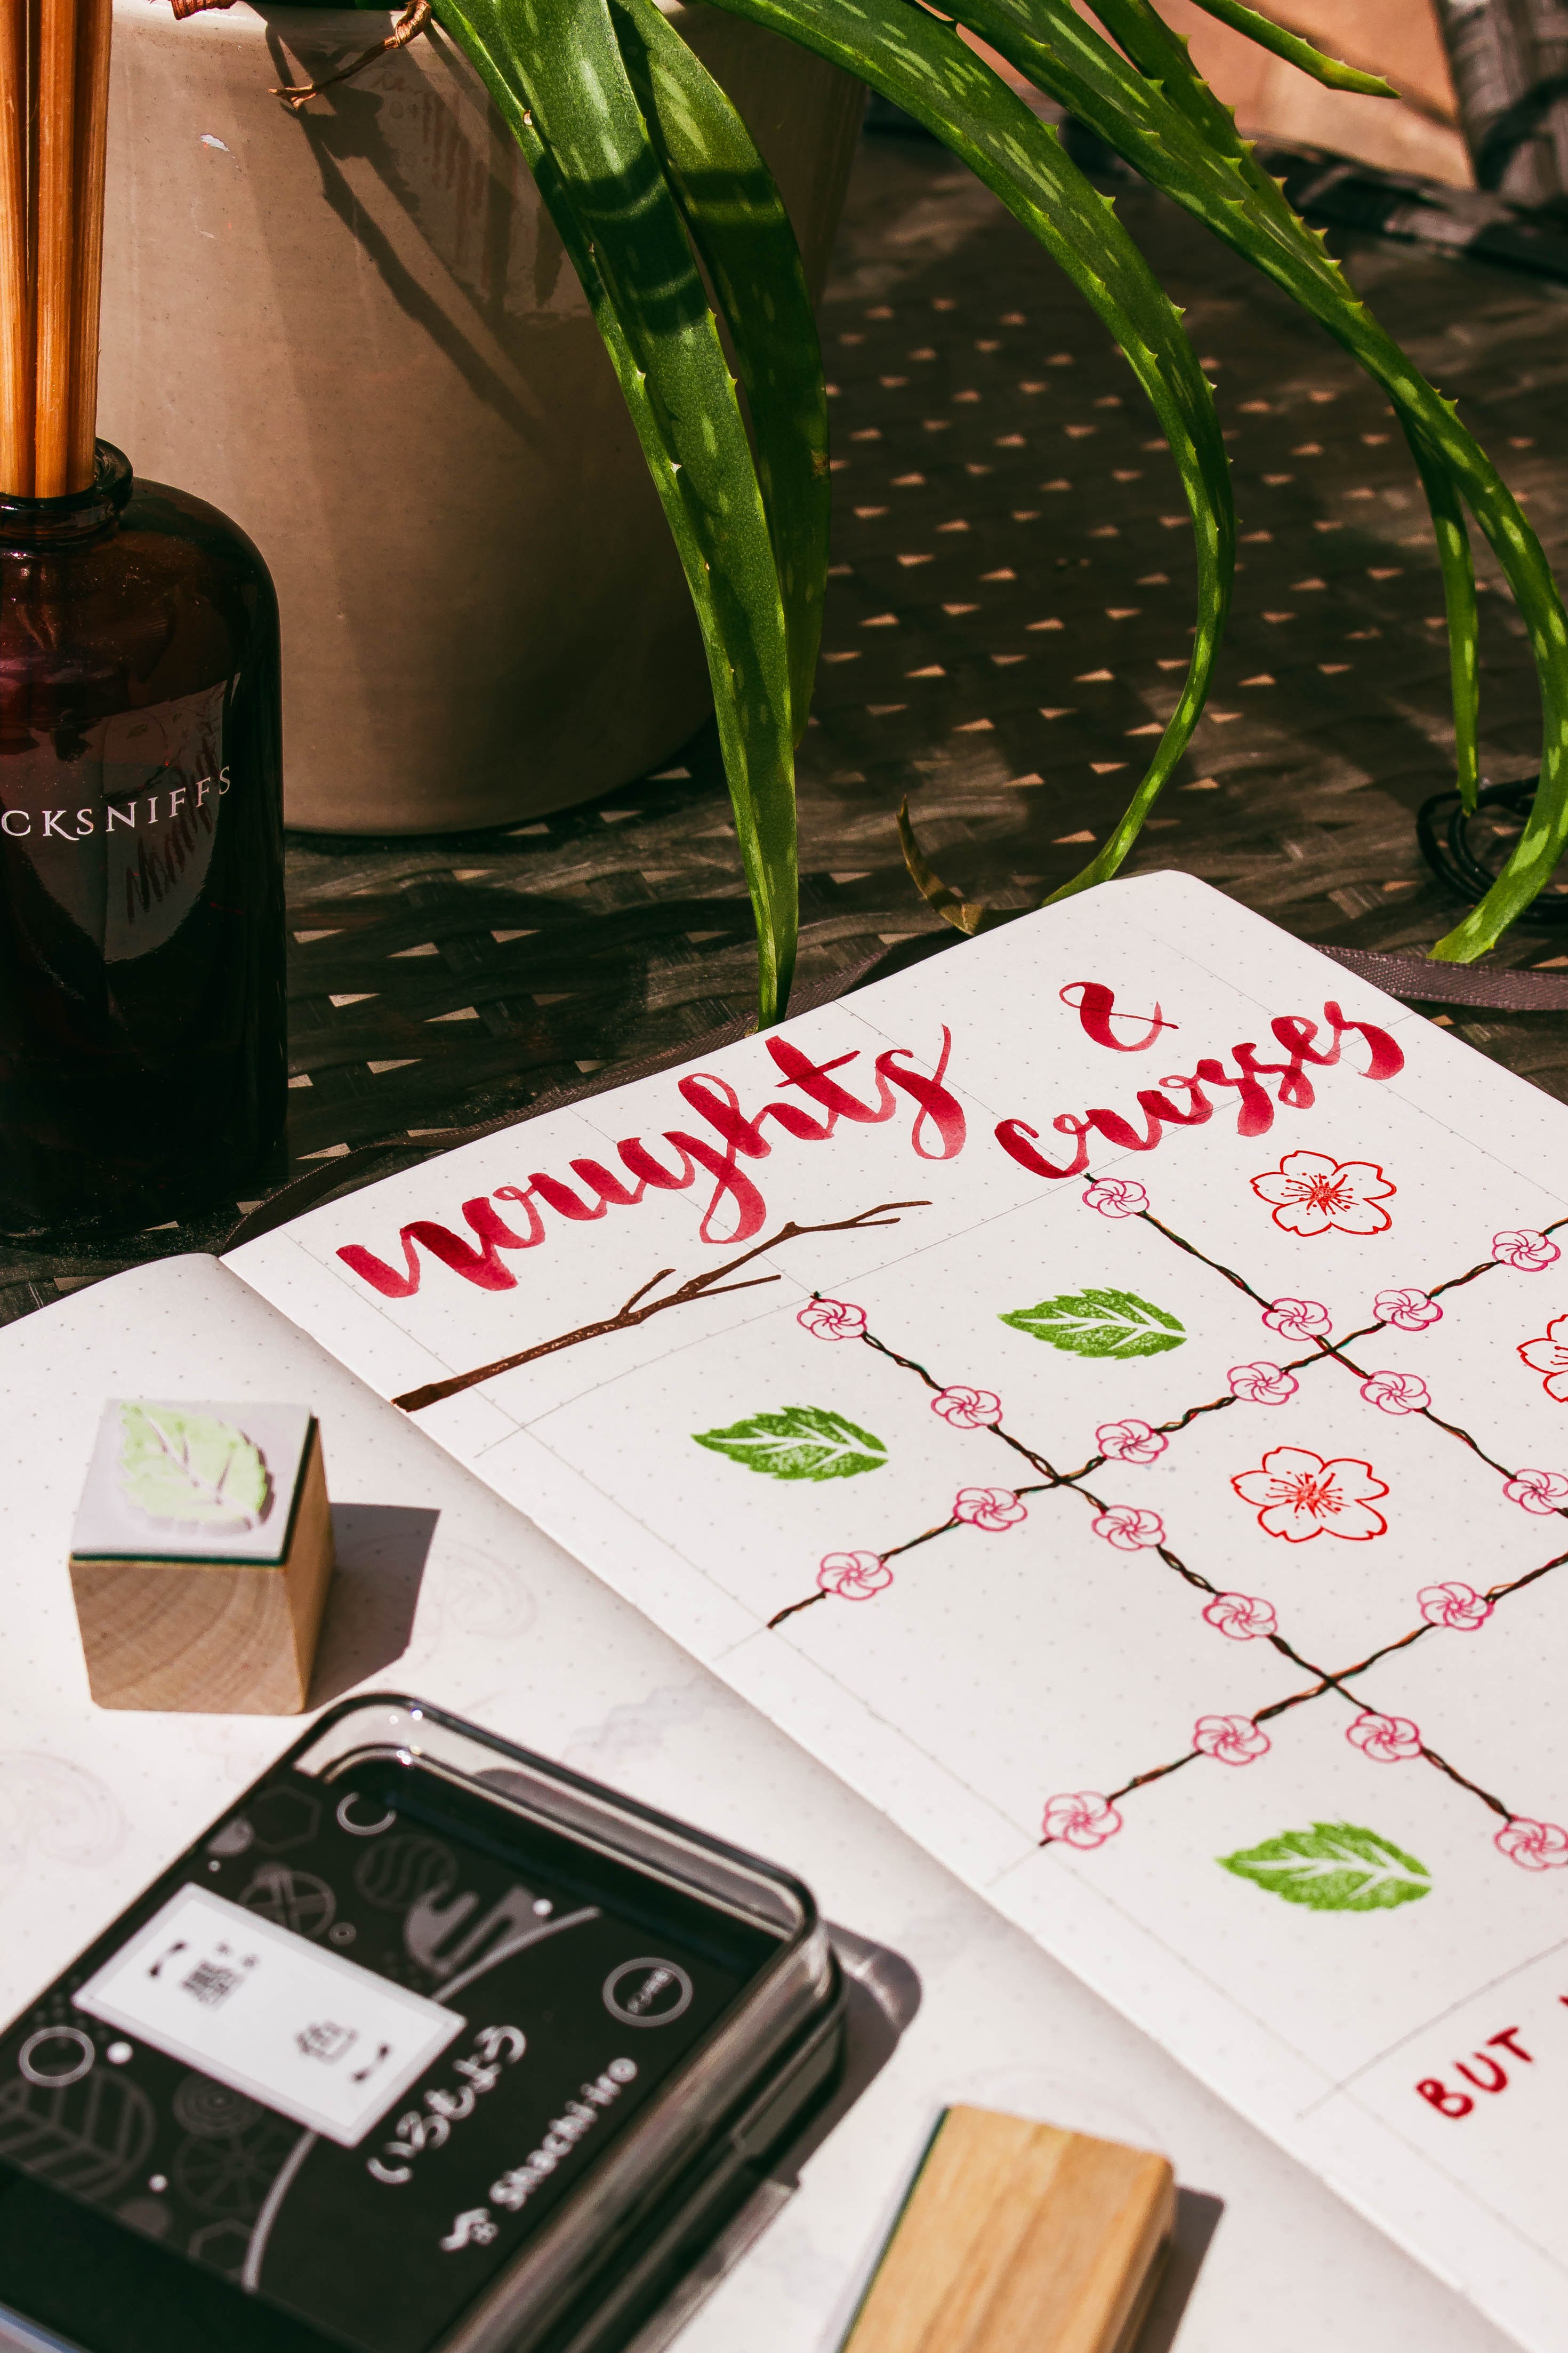 CKSNIFFS
noughts &
crosses
BUT
墨色
いろもよう
Shachi-iro